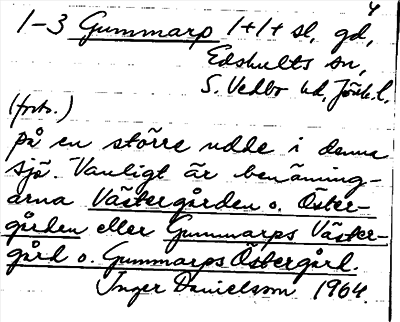 4
1-3 Gummarp 1+1+ sl, gd,
Edshults sn,
S. Vedbo hd, Jönk.l.
(forts.)
på en större udde i denna
sjö. Vanligt är benämning-
arna Västergården o. Öster-
gården eller Gummarps Väster-
gård o. Gummarps Östergård.
Inger Danielsson 1964.